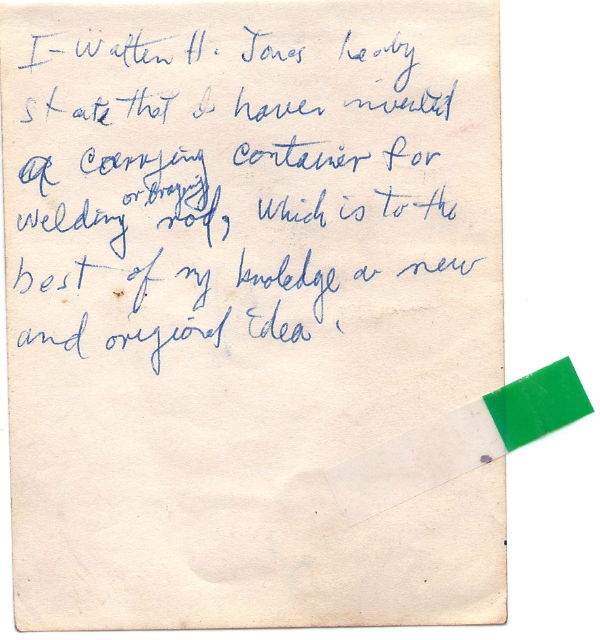 I - Walter H. Jones heaby
state that I haver invented
a carrying container for
welding or brazing rod, which is to the
best of my knoledge a new
and origional idea.